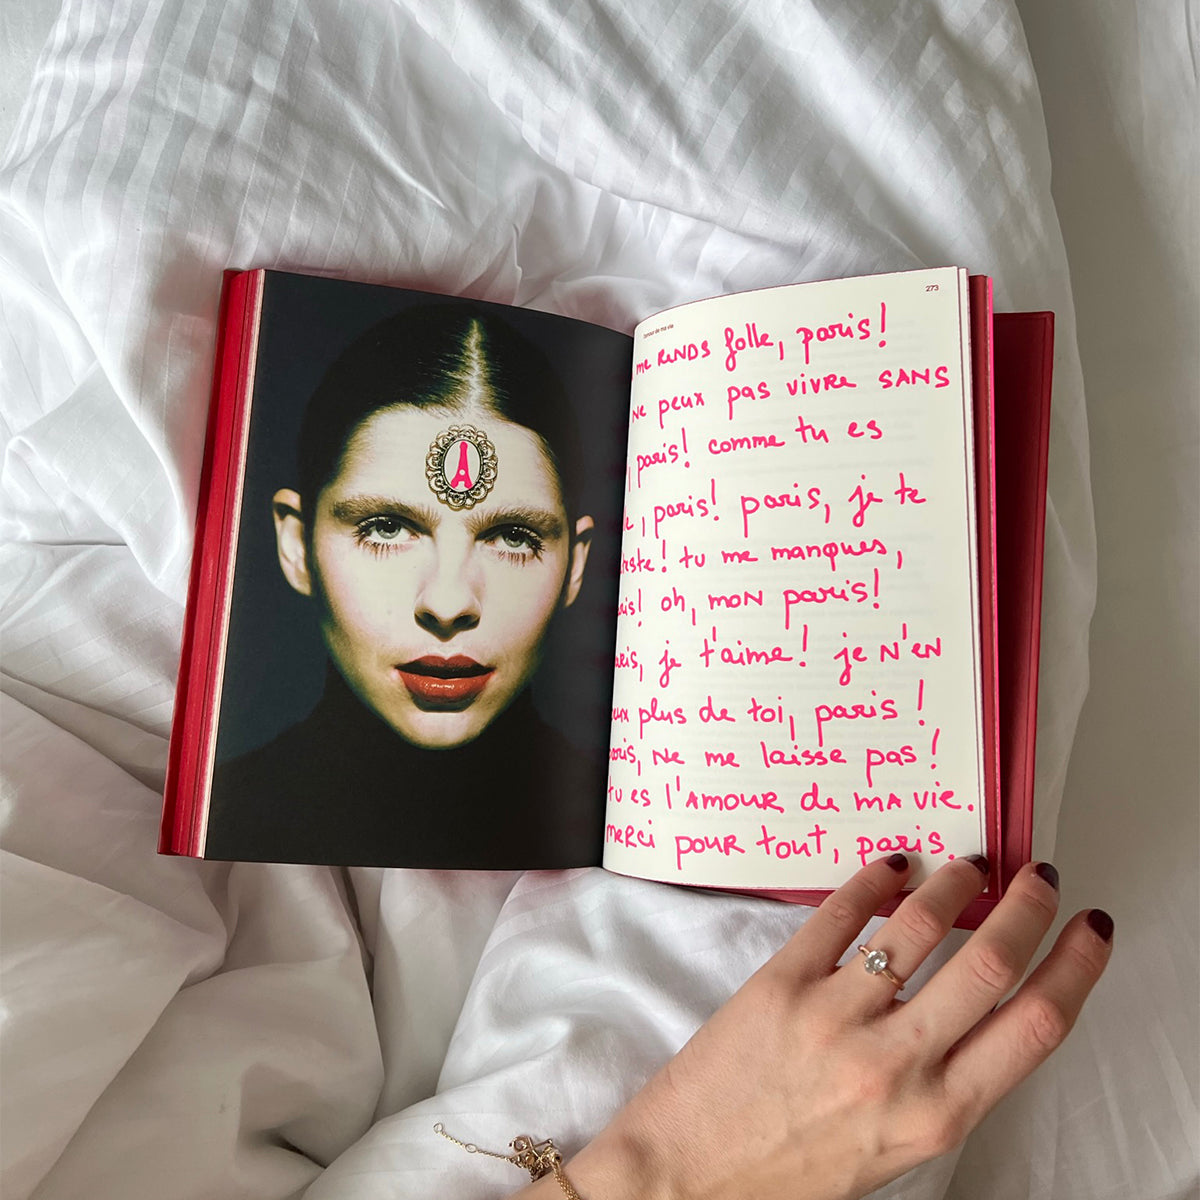 273
l'amour de ma vie
me RENDS folle, paris!
NE peux pas vivre SANS
, paris! comme tu es
, paris! paris, je te
! tu me manques,
! oh, mon paris!
, je t'aime! je N'EN
plus de toi, paris!
, NE me laisse pas!
tu es l'AMOUR de MA vie.
MERci pour tout, paris.